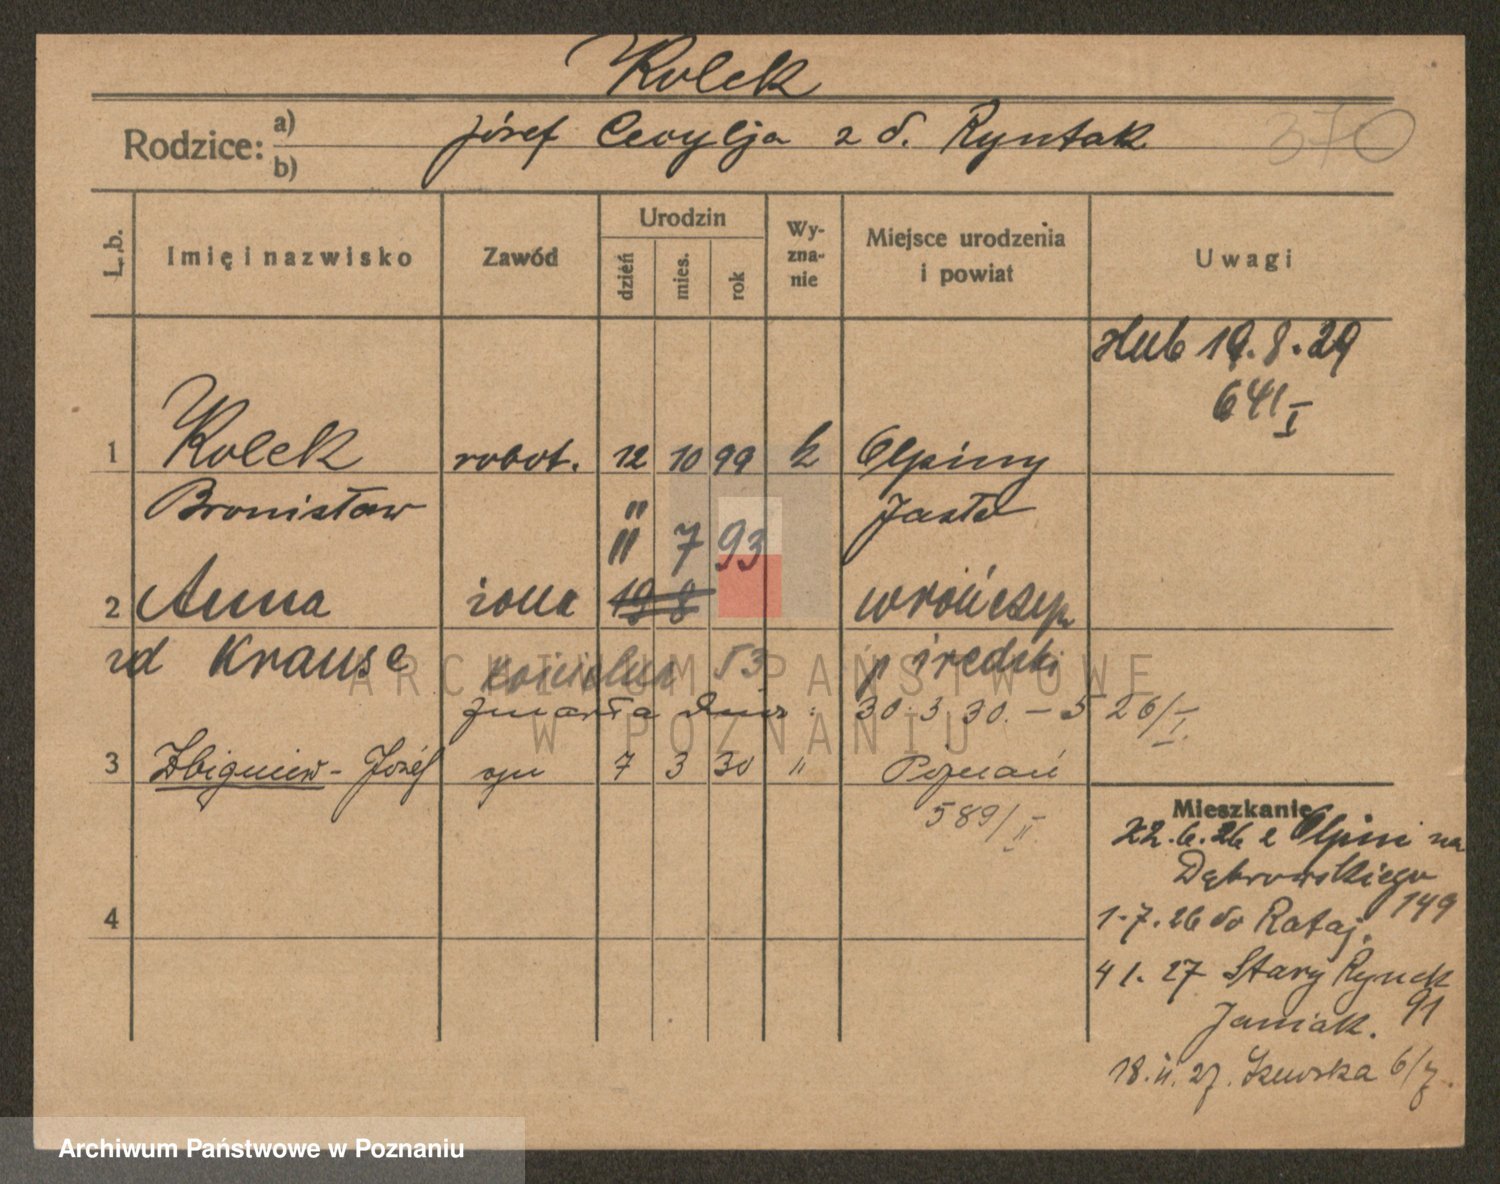 Kolek
Rodzice: a) b) Józef Cecylja z d. Ryntak
370
L.b. Imię i nazwisko Zawód Urodzin dzień mies. rok Wyznanie Miejsce urodzenia i powiat Uwagi
Hub 19.8.29
641/I
1 Kolek robot. 12 10 99 k Olpiny
Bronisław " Jasło
11 7 93
2 Anna żona 19 8
zd Krause 53 p średzki
zmarła dnia: 30.3.30. – 526/I.
3 Zbigniew-Józef syn 7 3 30 " Poznań
589/II
Mieszkanie
22.6.26 z Olpin na
Dąbrowskiego
149
4
1.7.26 do Rataj.
4 1. 27 Stary Rynek
91
Janiak.
18.II.27. 6/7.
ARCHIWUM PAŃSTWOWE
W POZNANIU
Archiwum Państwowe w Poznaniu